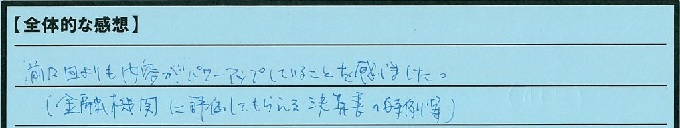 【全体的な感想】
前回よりも内容がパワーアップしていることを感じました。
(金融機関に評価してもらえる決算書の特例等)